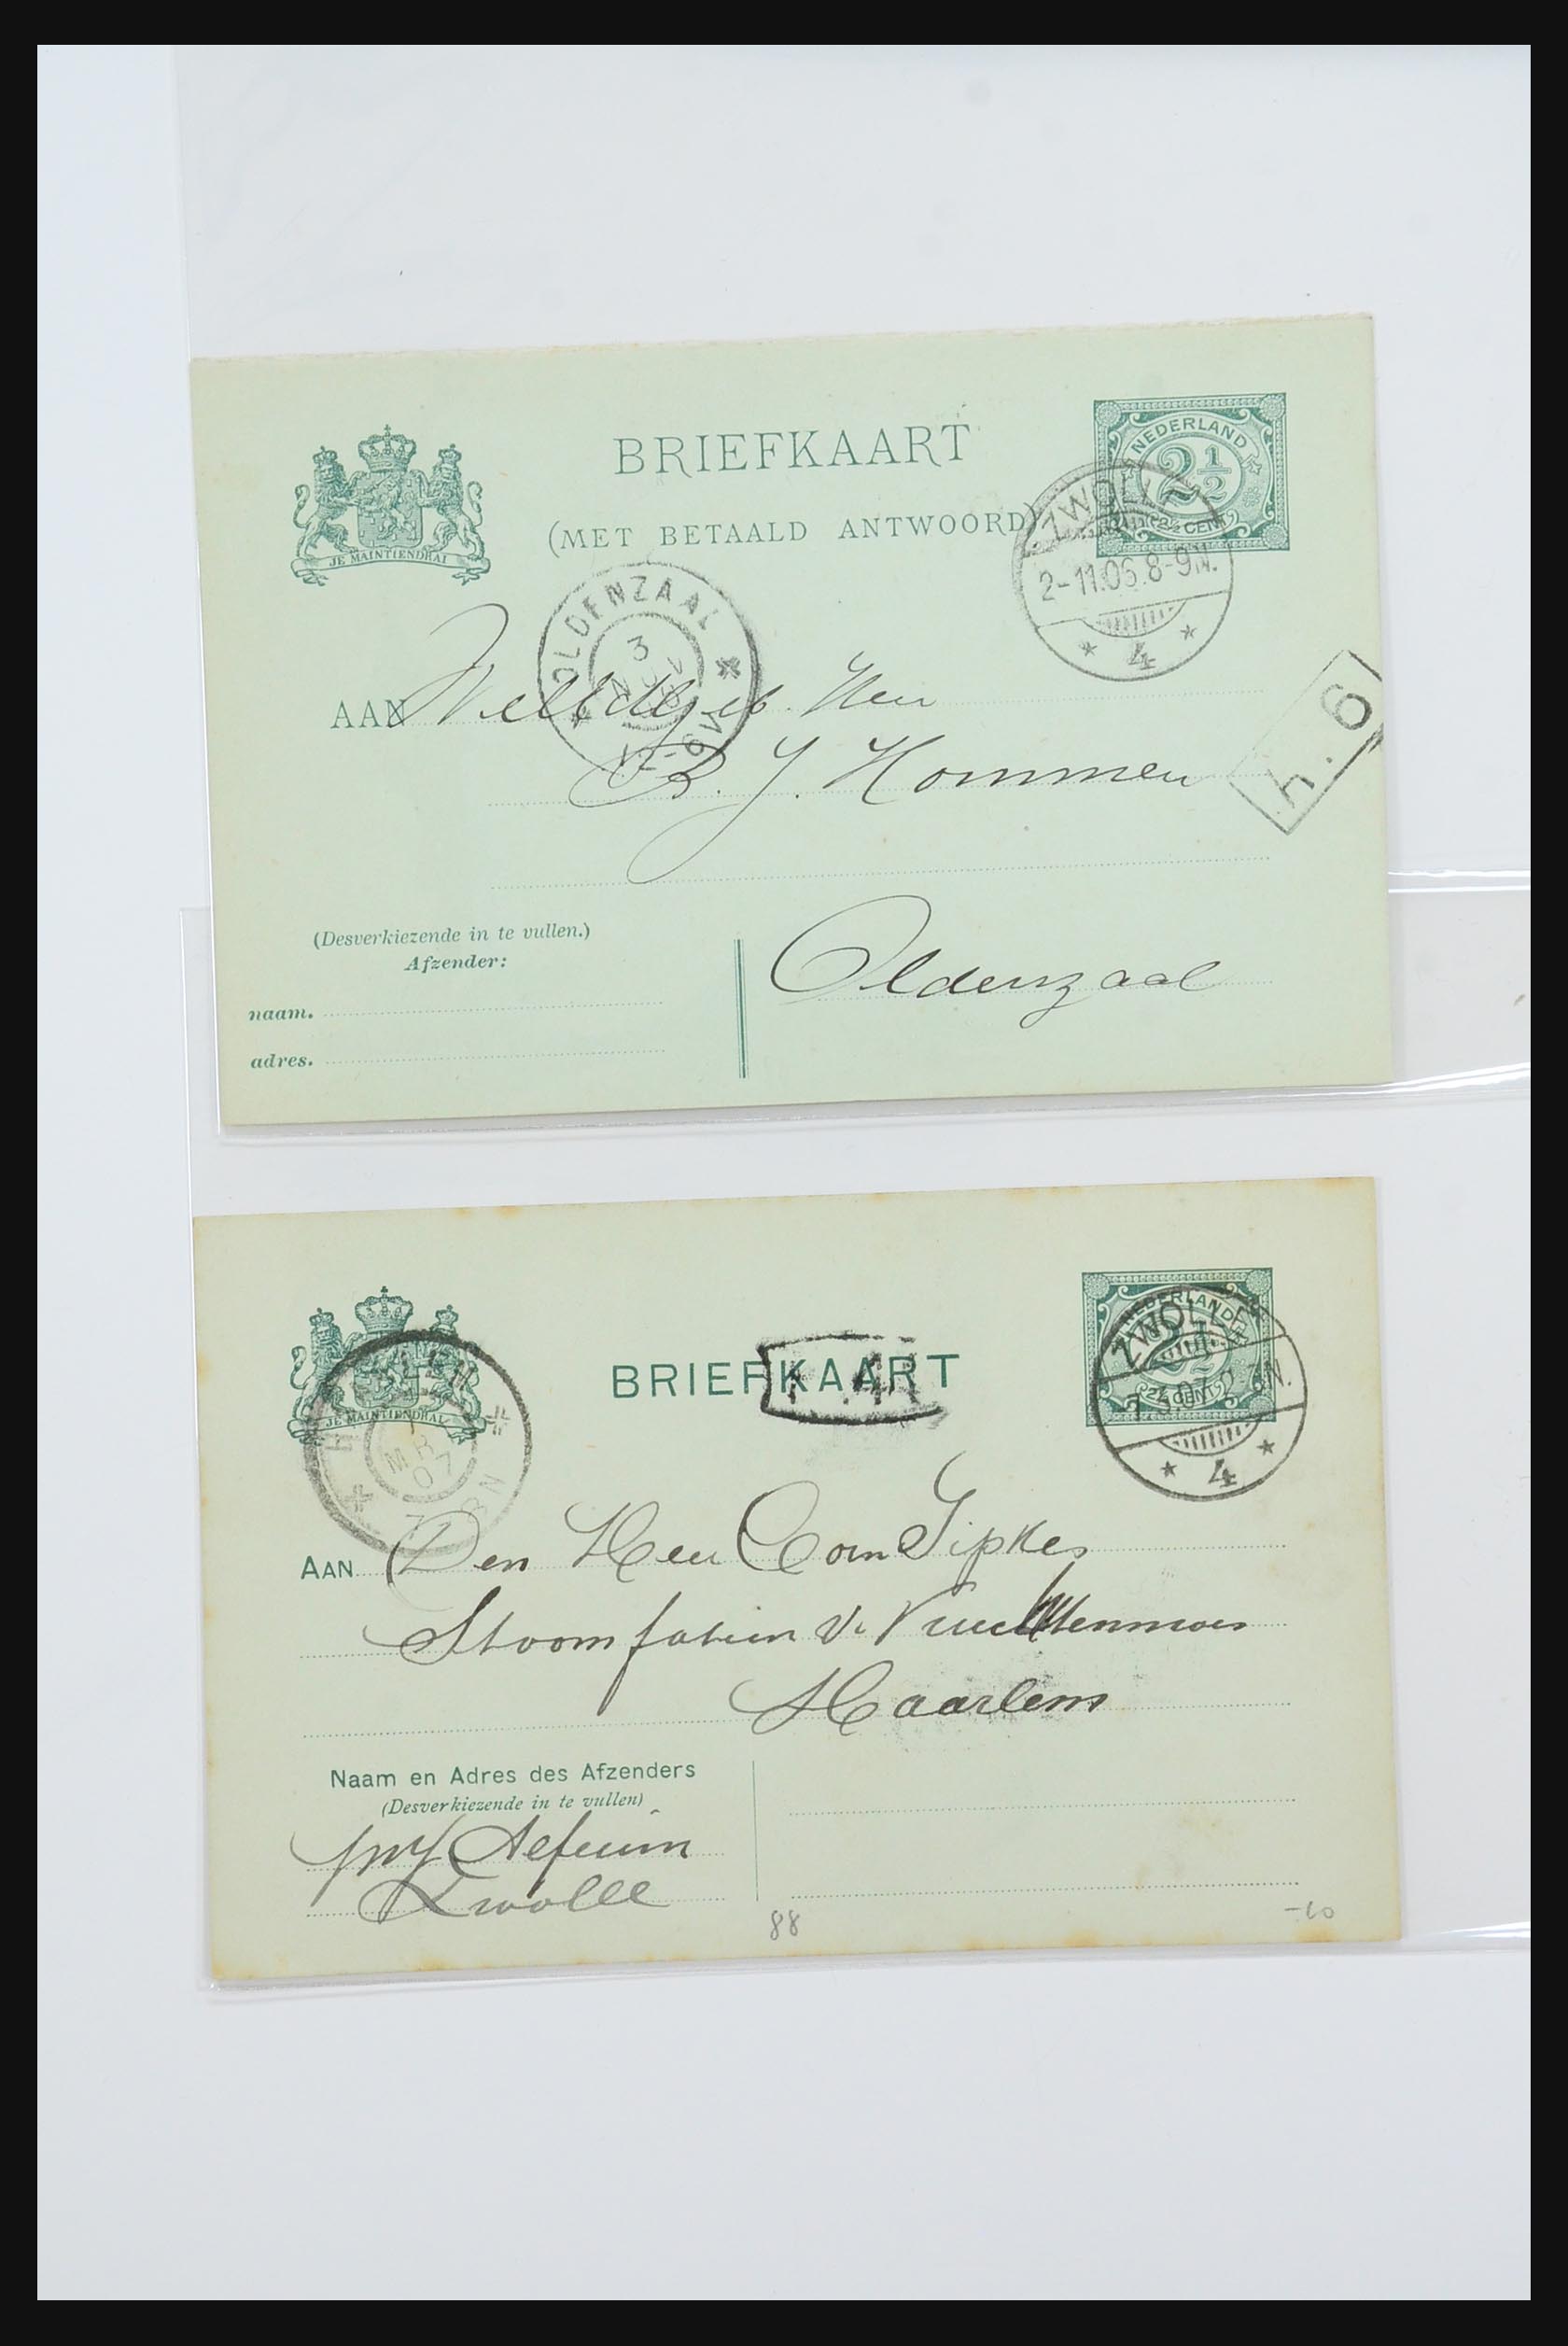 BRIEFKAART
(MET BETAALD ANTWOORD)
NEDERLAND
2 1/2
2½ CENT
JE MAINTIENDRAI
ZWOLLE
2-11.06.8-9N.
* 4 *
OLDENZAAL
3
NOV
h.6
AAN Heer
B. J. Hommen
Oldenzaal
(Desverkiezende in te vullen.)
Afzender:
naam.
adres.
BRIEFKAART
NEDERLAND
2½ CENT
JE MAINTIENDRAI
ZWOLLE
* 4 *
MR
07
7-8N
AAN Den Heer Corn Gipkes
Stoom v.
Haarlem
Naam en Adres des Afzenders
(Desverkiezende in te vullen)
Zwolle
88
-60